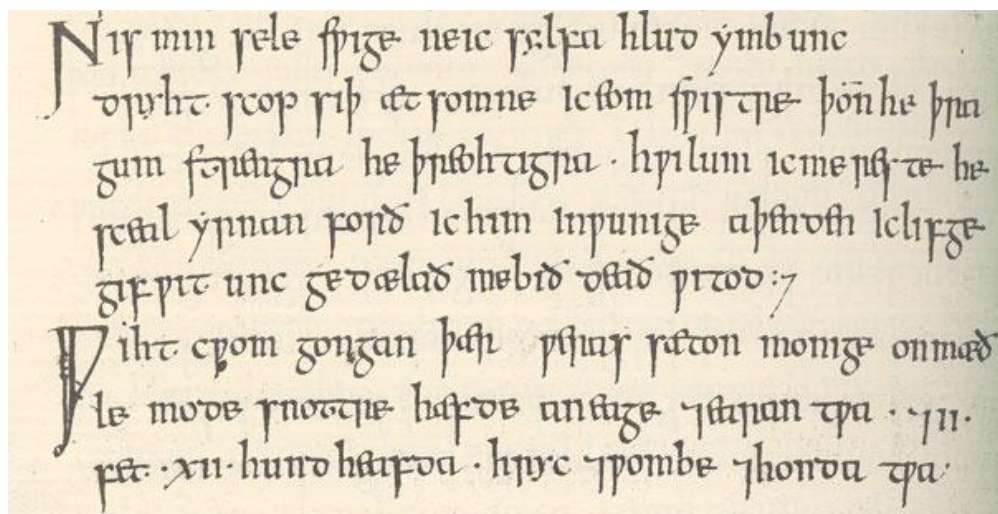 Nis min sele swige ne ic sylfa hlud ymb unc
dryht scop siþ ætsomne ic eom swiftre þoñ he þra
gum strengra he þreohtigra · hwilum ic me reste he
sceal yrnan forð ic him in wunige a þenden ic lifge
gif wit unc gedælað me bið deað witod :⁊
Wiht cwom gongan þær weras sæton monige on mæð
le mode snottre hæfde an eage ⁊ earan twa · ⁊ II ·
fet · XII · hund heafda · hryc ⁊ wombe ⁊ honda twa